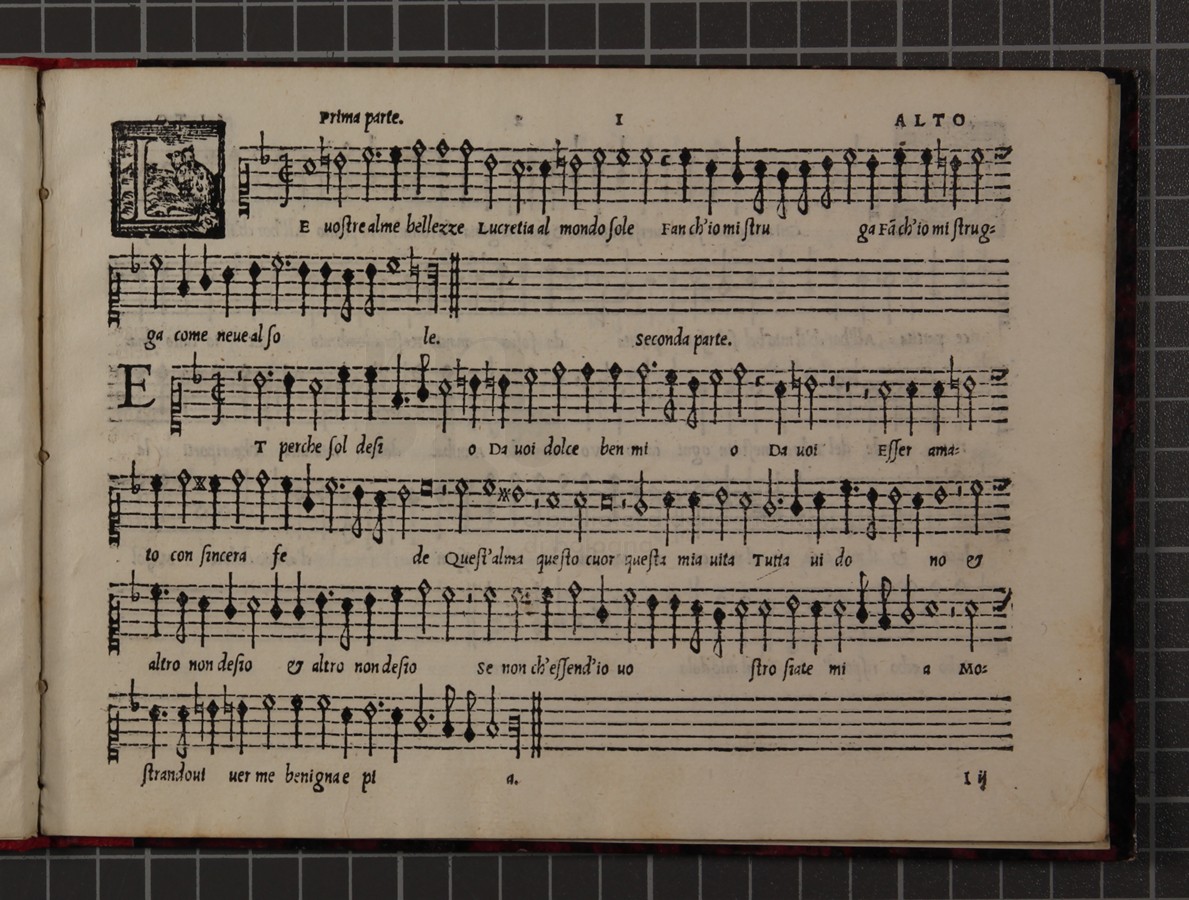 Prima parte. I ALTO
LE uostre alme bellezze Lucretia al mondo sole Fan ch'io mi stru ga Fā ch'io mi strug-
ga come neue al so le. Seconda parte.
ET perche sol desi o Da uoi dolce ben mi o Da uoi Esser ama-
to con sincera fe de Quest'alma questo cuor questa mia uita Tutta ui do no &
altro non desio & altro non desio Se non ch'essend'io uo stro siate mi a Mo-
strandoui uer me benigna e pi a.
I ij